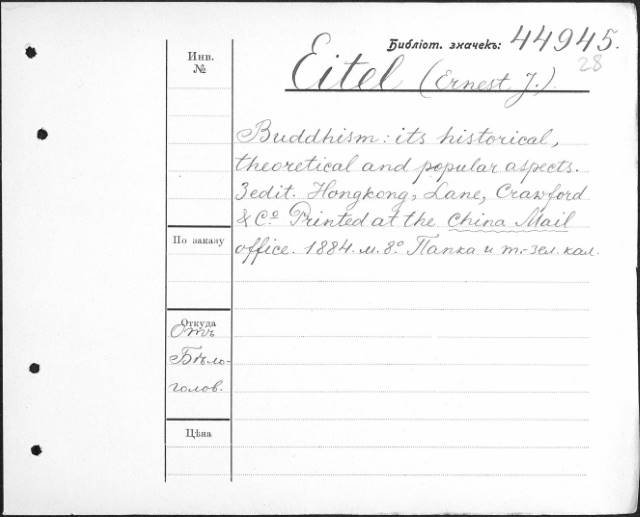 Библіот. значекъ: 44945.
28
Eitel (Ernest J.).
Инв.
№
Buddhism: its historical,
theoretical and popular aspects.
3 edit. Hongkong, Lane, Crawford
& Cº Printed at the China Mail
office. 1884. м. 8º Папка и т.-зел. кал.
По заказу
Откуда
Отъ
Бѣло-
голов.
Цѣна